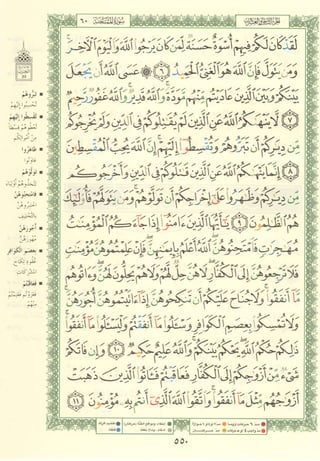 الجزء الثامن والعشرون
سورة الممتحنة ٦٠
لَقَدْ كَانَ لَكُمْ فِيهِمْ أُسْوَةٌ حَسَنَةٌ لِّمَن كَانَ يَرْجُوا۟ ٱللَّهَ وَٱلْيَوْمَ ٱلْـَٔاخِرَ ۚ
وَمَن يَتَوَلَّ فَإِنَّ ٱللَّهَ هُوَ ٱلْغَنِىُّ ٱلْحَمِيدُ ٦ عَسَى ٱللَّهُ أَن يَجْعَلَ
بَيْنَكُمْ وَبَيْنَ ٱلَّذِينَ عَادَيْتُم مِّنْهُم مَّوَدَّةً ۚ وَٱللَّهُ قَدِيرٌ ۚ وَٱللَّهُ غَفُورٌ رَّحِيمٌ
٧ لَّا يَنْهَىٰكُمُ ٱللَّهُ عَنِ ٱلَّذِينَ لَمْ يُقَٰتِلُوكُمْ فِى ٱلدِّينِ وَلَمْ يُخْرِجُوكُم
مِّن دِيَٰرِكُمْ أَن تَبَرُّوهُمْ وَتُقْسِطُوٓا۟ إِلَيْهِمْ ۚ إِنَّ ٱللَّهَ يُحِبُّ ٱلْمُقْسِطِينَ
٨ إِنَّمَا يَنْهَىٰكُمُ ٱللَّهُ عَنِ ٱلَّذِينَ قَٰتَلُوكُمْ فِى ٱلدِّينِ وَأَخْرَجُوكُم
مِّن دِيَٰرِكُمْ وَظَٰهَرُوا۟ عَلَىٰٓ إِخْرَاجِكُمْ أَن تَوَلَّوْهُمْ ۚ وَمَن يَتَوَلَّهُمْ فَأُو۟لَٰٓئِكَ
هُمُ ٱلظَّٰلِمُونَ ٩ يَٰٓأَيُّهَا ٱلَّذِينَ ءَامَنُوٓا۟ إِذَا جَآءَكُمُ ٱلْمُؤْمِنَٰتُ
مُهَٰجِرَٰتٍ فَٱمْتَحِنُوهُنَّ ۖ ٱللَّهُ أَعْلَمُ بِإِيمَٰنِهِنَّ ۖ فَإِنْ عَلِمْتُمُوهُنَّ مُؤْمِنَٰتٍ
فَلَا تَرْجِعُوهُنَّ إِلَى ٱلْكُفَّارِ ۖ لَا هُنَّ حِلٌّ لَّهُمْ وَلَا هُمْ يَحِلُّونَ لَهُنَّ ۖ وَءَاتُوهُم
مَّآ أَنفَقُوا۟ ۚ وَلَا جُنَاحَ عَلَيْكُمْ أَن تَنكِحُوهُنَّ إِذَآ ءَاتَيْتُمُوهُنَّ أُجُورَهُنَّ ۚ
وَلَا تُمْسِكُوا۟ بِعِصَمِ ٱلْكَوَافِرِ وَسْـَٔلُوا۟ مَآ أَنفَقْتُمْ وَلْيَسْـَٔلُوا۟ مَآ أَنفَقُوا۟ ۚ
ذَٰلِكُمْ حُكْمُ ٱللَّهِ ۖ يَحْكُمُ بَيْنَكُمْ ۚ وَٱللَّهُ عَلِيمٌ حَكِيمٌ ١٠ وَإِن فَاتَكُمْ
شَىْءٌ مِّنْ أَزْوَٰجِكُمْ إِلَى ٱلْكُفَّارِ فَعَاقَبْتُمْ فَـَٔاتُوا۟ ٱلَّذِينَ ذَهَبَتْ
أَزْوَٰجُهُم مِّثْلَ مَآ أَنفَقُوا۟ ۚ وَٱتَّقُوا۟ ٱللَّهَ ٱلَّذِىٓ أَنتُم بِهِۦ مُؤْمِنُونَ ١١
٥٥٠